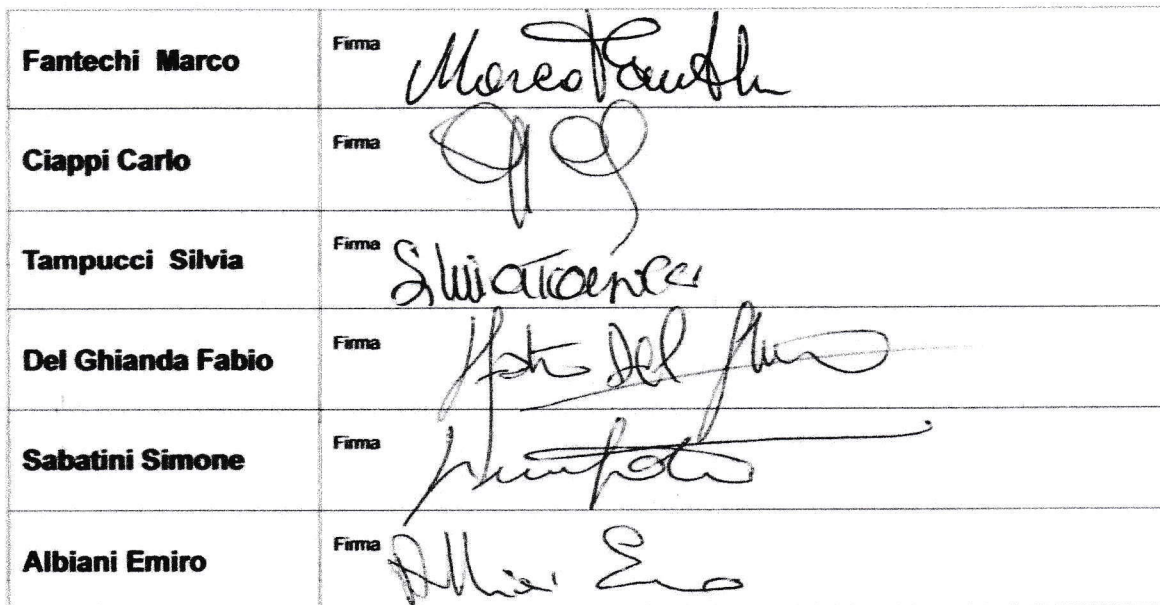 Fantechi Marco Firma Marco Fantechi
Ciappi Carlo Firma
Tampucci Silvia Firma Silvia Tampucci
Del Ghianda Fabio Firma Fabio Del
Sabatini Simone Firma
Albiani Emiro Firma